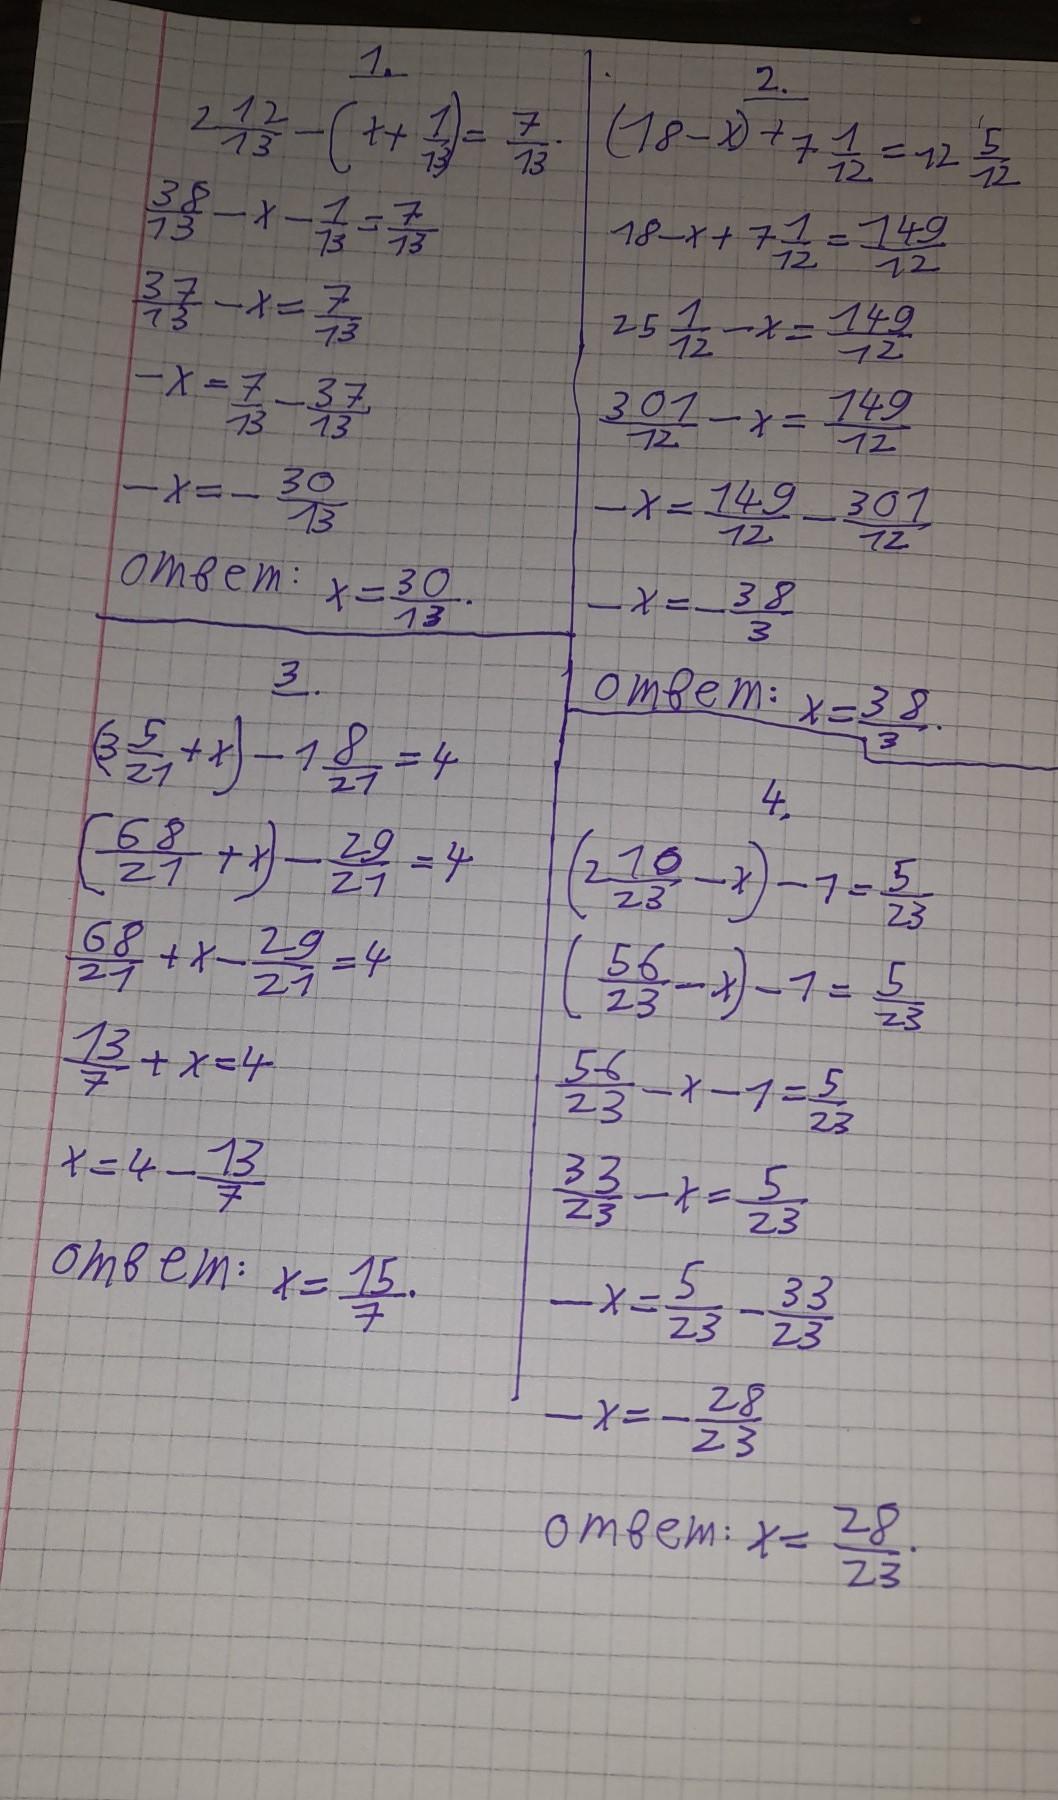 1.
2 12/13 - (x + 1/13) = 7/13.
38/13 - x - 1/13 = 7/13
37/13 - x = 7/13
-x = 7/13 - 37/13
-x = - 30/13
ответ: x = 30/13.
2.
(18 - x) + 7 1/12 = 12 5/12
18 - x + 7 1/12 = 149/12
25 1/12 - x = 149/12
301/12 - x = 149/12
-x = 149/12 - 301/12
-x = - 38/3
ответ: x = 38/3.
3.
(3 5/21 + x) - 1 8/21 = 4
(68/21 + x) - 29/21 = 4
68/21 + x - 29/21 = 4
13/7 + x = 4
x = 4 - 13/7
ответ: x = 15/7.
4.
(2 10/23 - x) - 1 = 5/23
(56/23 - x) - 1 = 5/23
56/23 - x - 1 = 5/23
33/23 - x = 5/23
-x = 5/23 - 33/23
-x = - 28/23
ответ: x = 28/23.